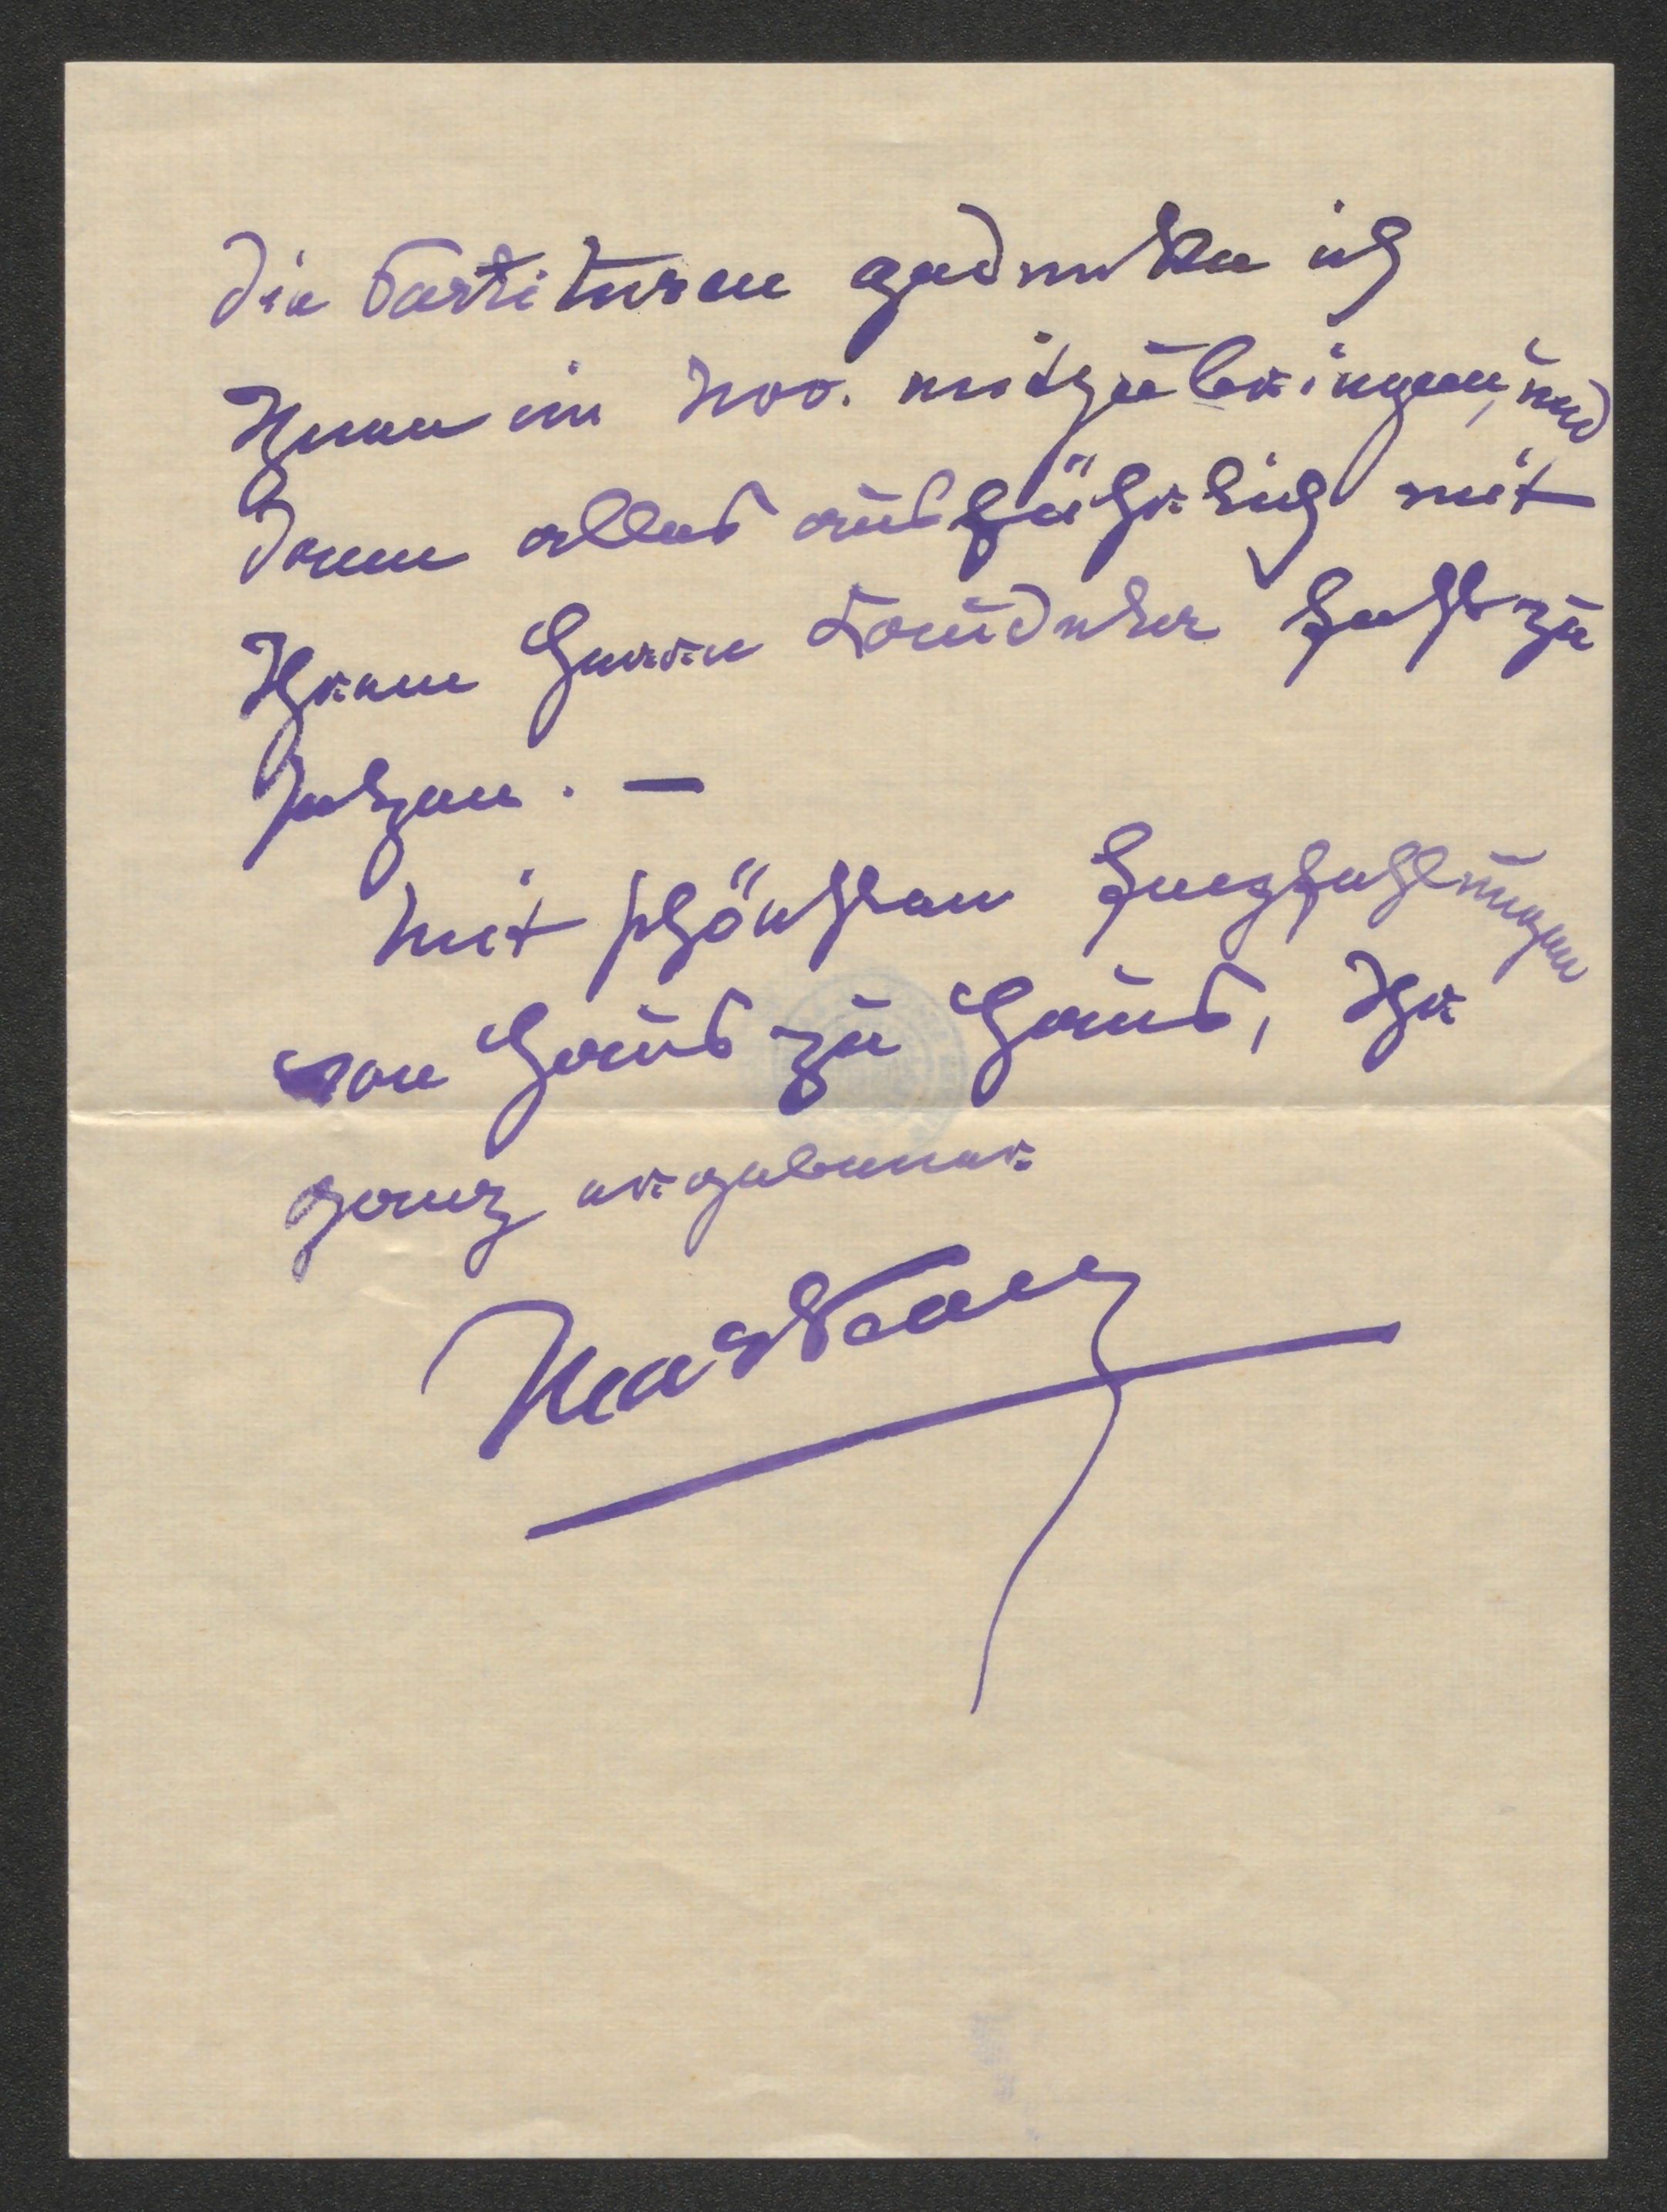 Die Partituren gedenke ich
Ihnen im Nov. mitzubringen, und
dann alles ausführlich mit
Ihrem Herrn Tondichter festzu
setzen. –
Mit schönsten Empfehlungen
von Haus zu Haus, Ihr
ganz ergebener